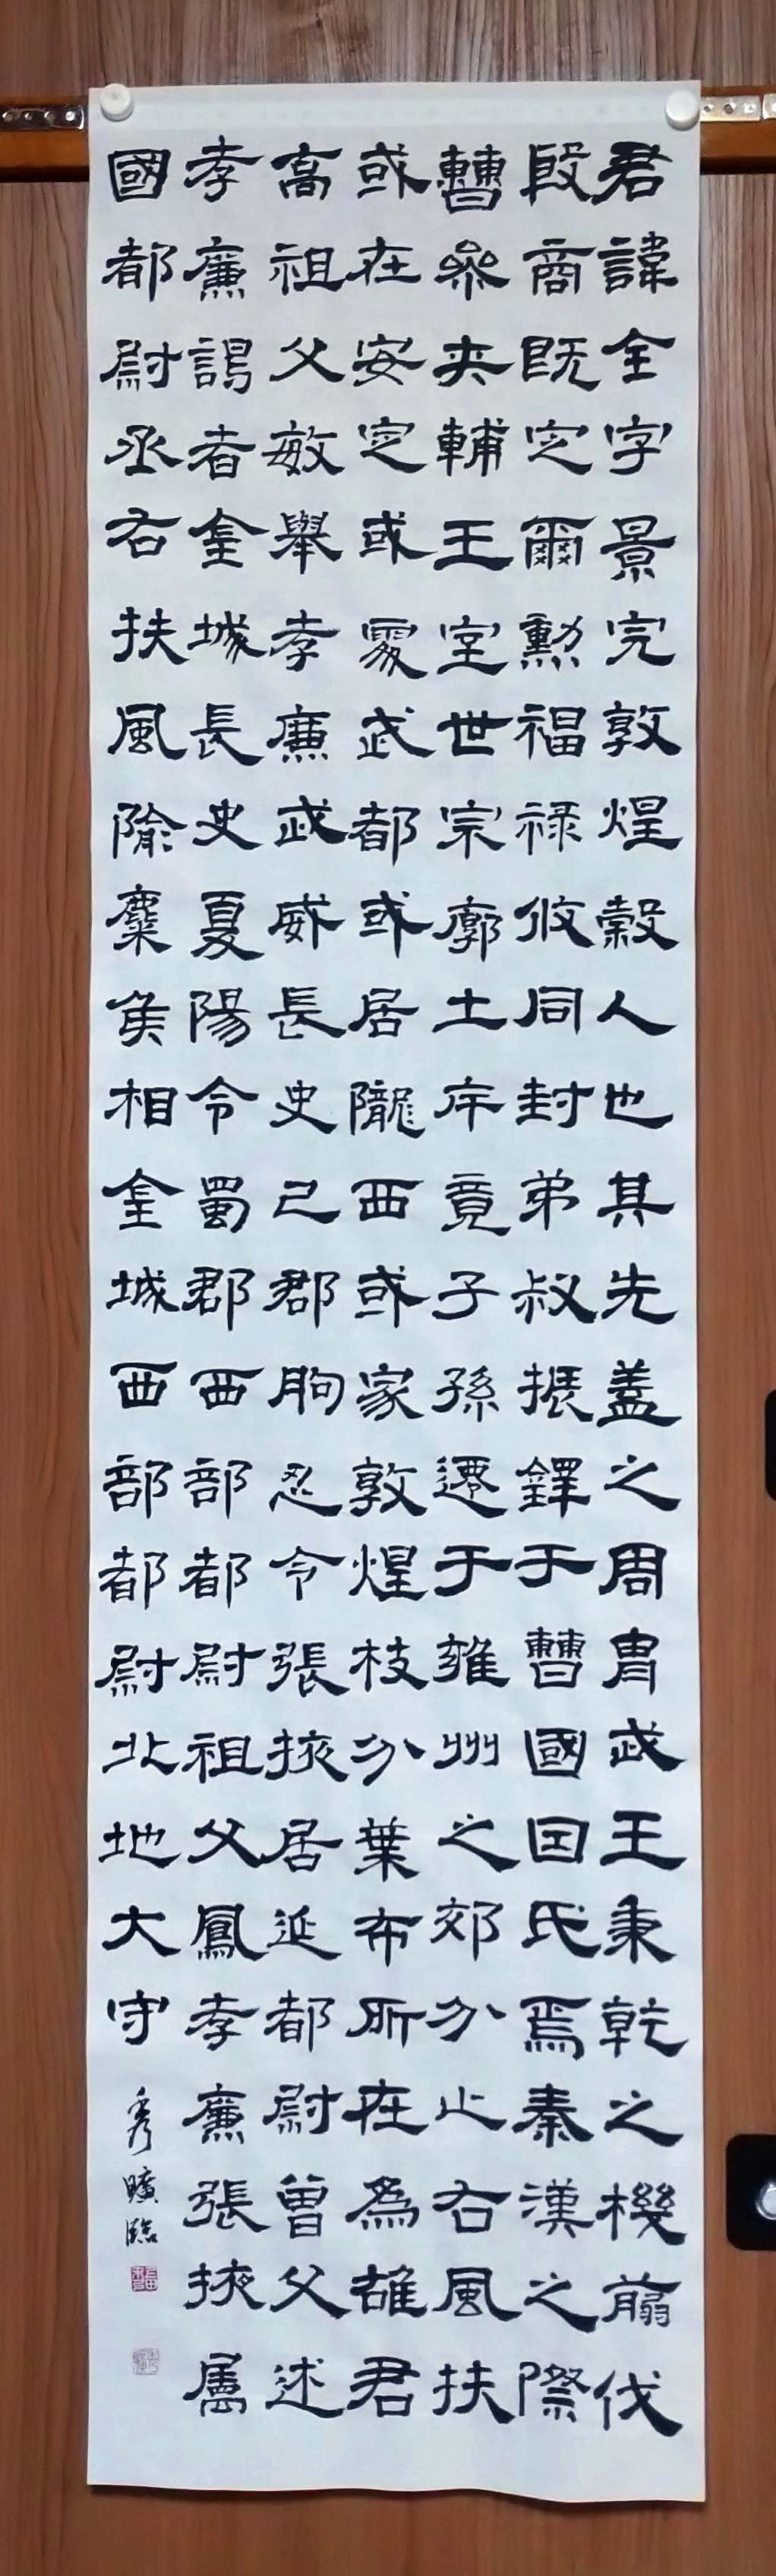 君諱全字景完敦煌穀人也其先蓋之周胄武王秉乾之機翦伐
殷商既定爾勲福禄攸同封弟叔振鐸于曹國因氏焉秦漢之際
曹參夾輔王室世宗廓土斥竟子孫遷于雍州之郊分止右風扶
或在安定或處武都或居隴西或家敦煌枝分葉布所在為雄君
高祖父敏舉孝廉武威長史巴郡朐忍令張掖居延都尉曾父述
孝廉謁者金城長史夏陽令蜀郡西部都尉祖父鳳孝廉張掖屬
國都尉丞右扶風隃麋侯相金城西部都尉北地大守
秀曠臨